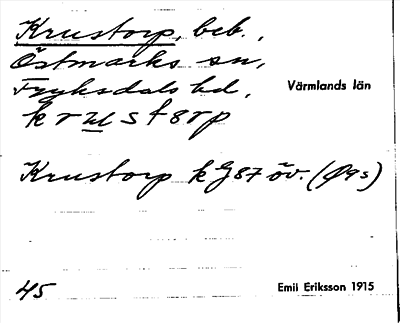 Krustorp, beb.,
Östmarks sn,
Fryksdals hd,
Värmlands län
Krustorp
öv.
45
Emil Eriksson 1915